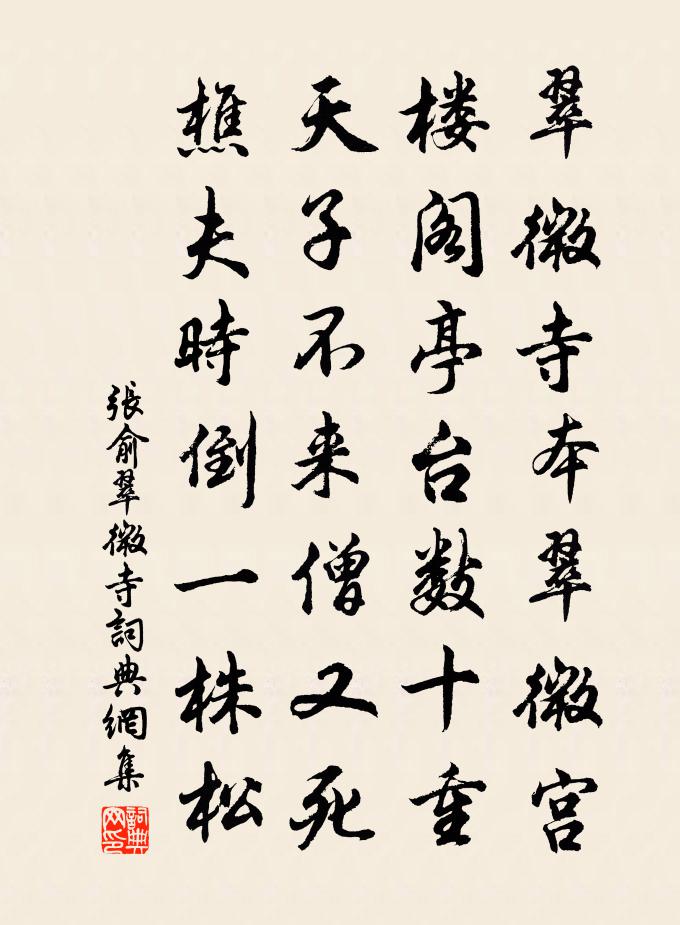 翠微寺本翠微宫
楼阁亭台数十重
天子不来僧又死
樵夫時倒一株松
張俞翠微寺詞典網集
詞典网印